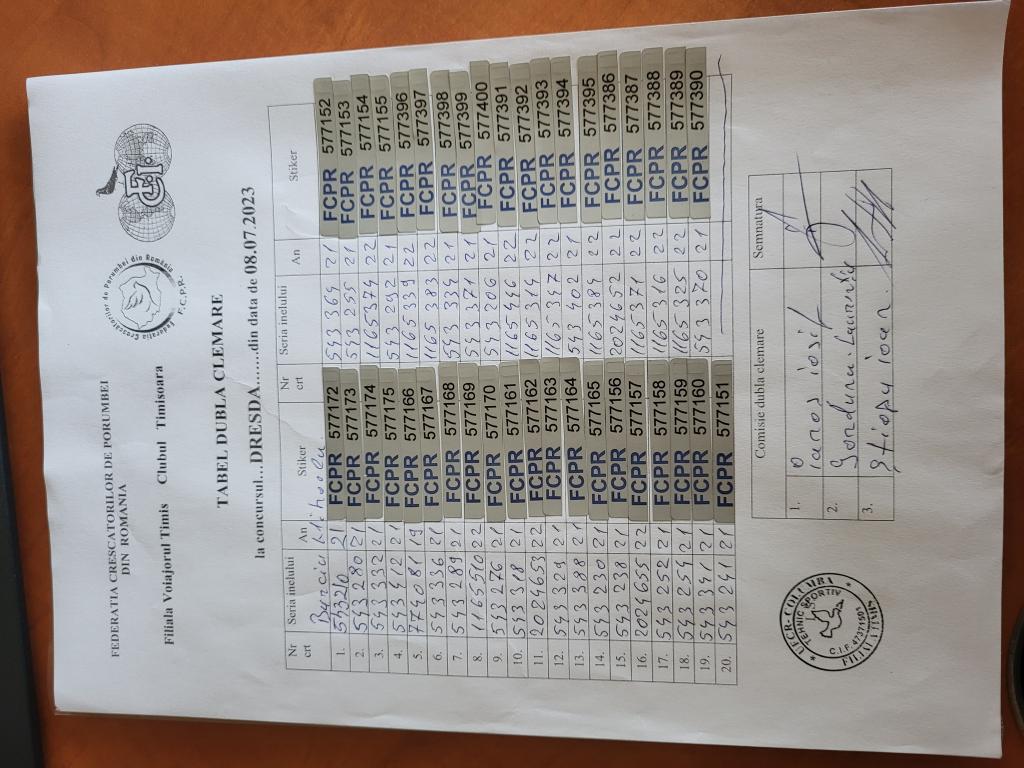 FEDERATIA CRESCATORILOR DE PORUMBEI
DIN ROMANIA
Federatia Crescatorilor de Porumbei din România
F.C.P.R.
FCI
Filiala Voiajorul Timis Clubul Timisoara
TABEL DUBLA CLEMARE
la concursul...DRESDA.......din data de 08.07.2023
Nr crt Seria inelului An Stiker Nr crt Seria inelului An Stiker
1. 543210 21 FCPR 577172 543 364 21 FCPR 577152
2. 543 280 21 FCPR 577173 543 255 21 FCPR 577153
3. 543 332 21 FCPR 577174 1165 374 22 FCPR 577154
4. 543 412 21 FCPR 577175 543 292 21 FCPR 577155
5. 7740 81 19 FCPR 577166 1165 339 22 FCPR 577396
6. 543 336 21 FCPR 577167 1165 383 22 FCPR 577397
7. 543 289 21 FCPR 577168 543 334 21 FCPR 577398
8. 1165510 22 FCPR 577169 543 371 21 FCPR 577399
9. 543 276 21 FCPR 577170 543 206 21 FCPR 577400
10. 543 318 21 FCPR 577161 1165 446 22 FCPR 577391
11. 2024653 22 FCPR 577162 1165 314 22 FCPR 577392
12. 543 329 21 FCPR 577163 1165 347 22 FCPR 577393
13. 543 388 21 FCPR 577164 543 402 21 FCPR 577394
14. 543 230 21 FCPR 577165 1165 384 22 FCPR 577395
15. 543 238 21 FCPR 577156 2024652 22 FCPR 577386
16. 2024655 22 FCPR 577157 1165 371 22 FCPR 577387
17. 543 252 21 FCPR 577158 1165 316 22 FCPR 577388
18. 543 254 21 FCPR 577159 1165 325 22 FCPR 577389
19. 543 341 21 FCPR 577160 543 370 21 FCPR 577390
20. 543 241 21 FCPR 577151
Comisie dubla clemare Semnatura
1. Ianos iosif
2.
3. Știopu ioan
UFCR-COLUMBA
TEHNIC SPORTIV
C.I.F. 47371501
FILIALA TIMIS